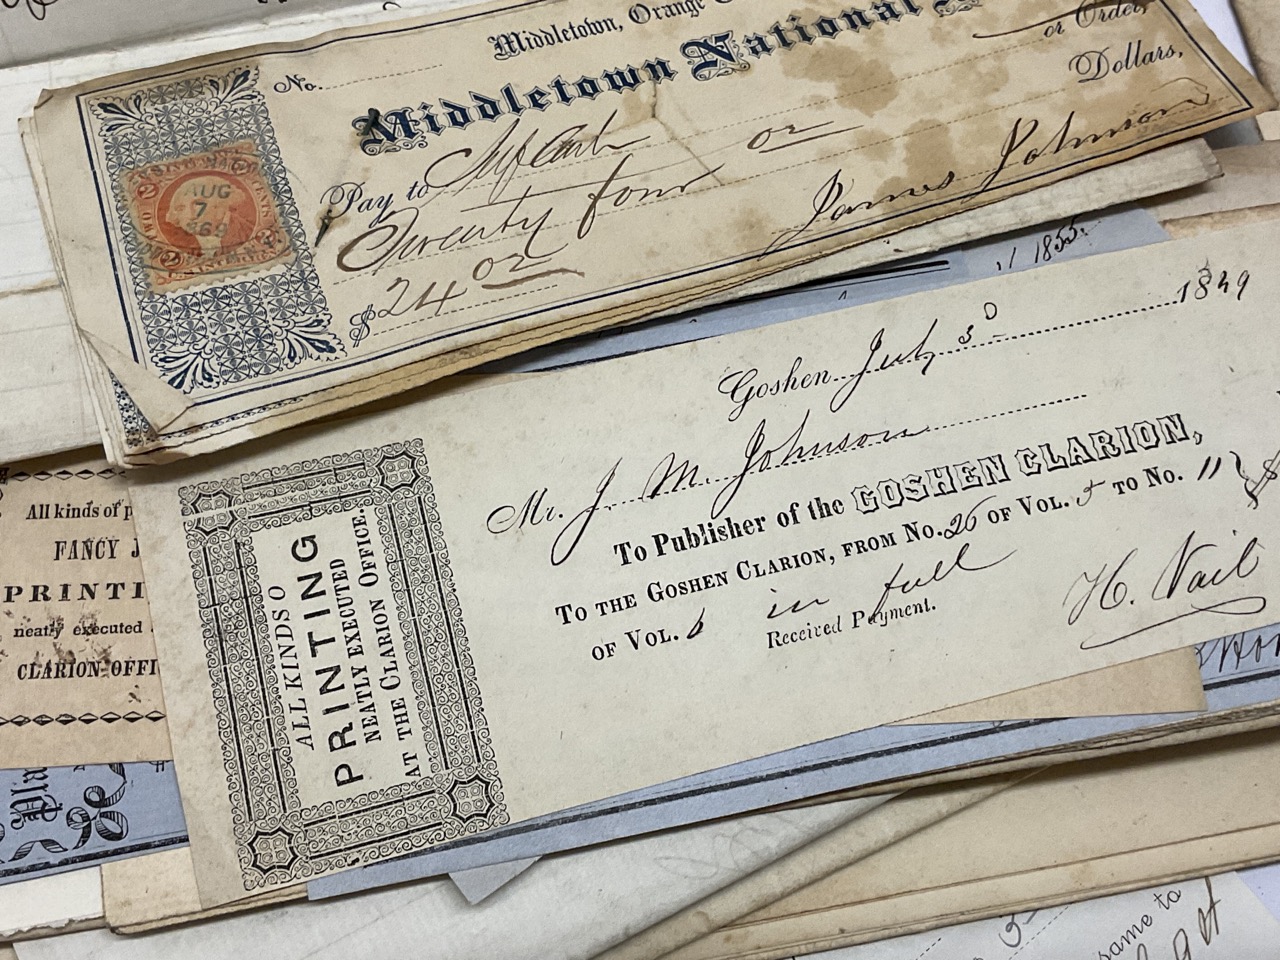 Middletown, Orange
No.
Middletown National
or Order,
Pay to
Dollars,
Twenty four 02
$24 02
James Johnson
TWO CENTS
AUG
7
1855.
Goshen July 3D
Mr. J. M. Johnson
To Publisher of the GOSHEN CLARION,
TO THE GOSHEN CLARION, FROM No. 26 OF VOL. 5 TO No. 11 } $
OF VOL. 6 in full
Received Payment.
H. Vail
ALL KINDS O
PRINTING
NEATLY EXECUTED
AT THE CLARION OFFICE.
All kinds of p
FANCY J
PRINTI
neatly executed
CLARION-OFFI
same to